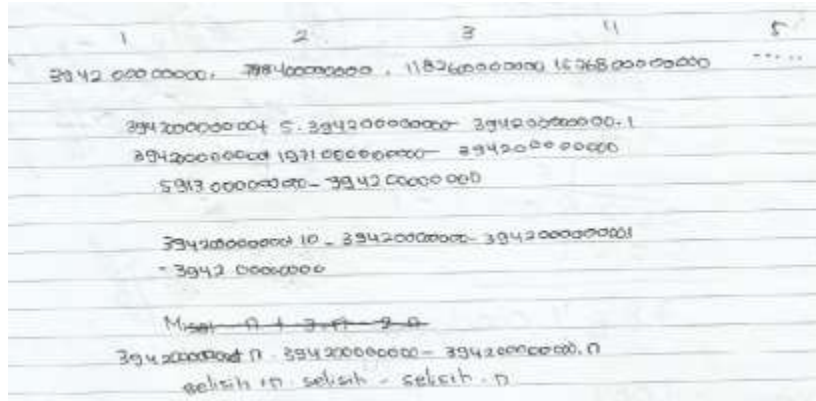 1 2 3 4 5
394200000000, 788400000000, 1182600000000 1576800000000 .....
394200000000+ 5.394200000000- 394200000000.1
394200000000+ 1971000000000- 394200000000
5913 00000000- 394200000000
394200000000+ 10 - 394200000000- 394200000000
- 3942 00000000
Misal n + 3.n - 2.n
394200000000+ n. 394200000000- 394200000000.n
selisih + n. selisih - selisih.n